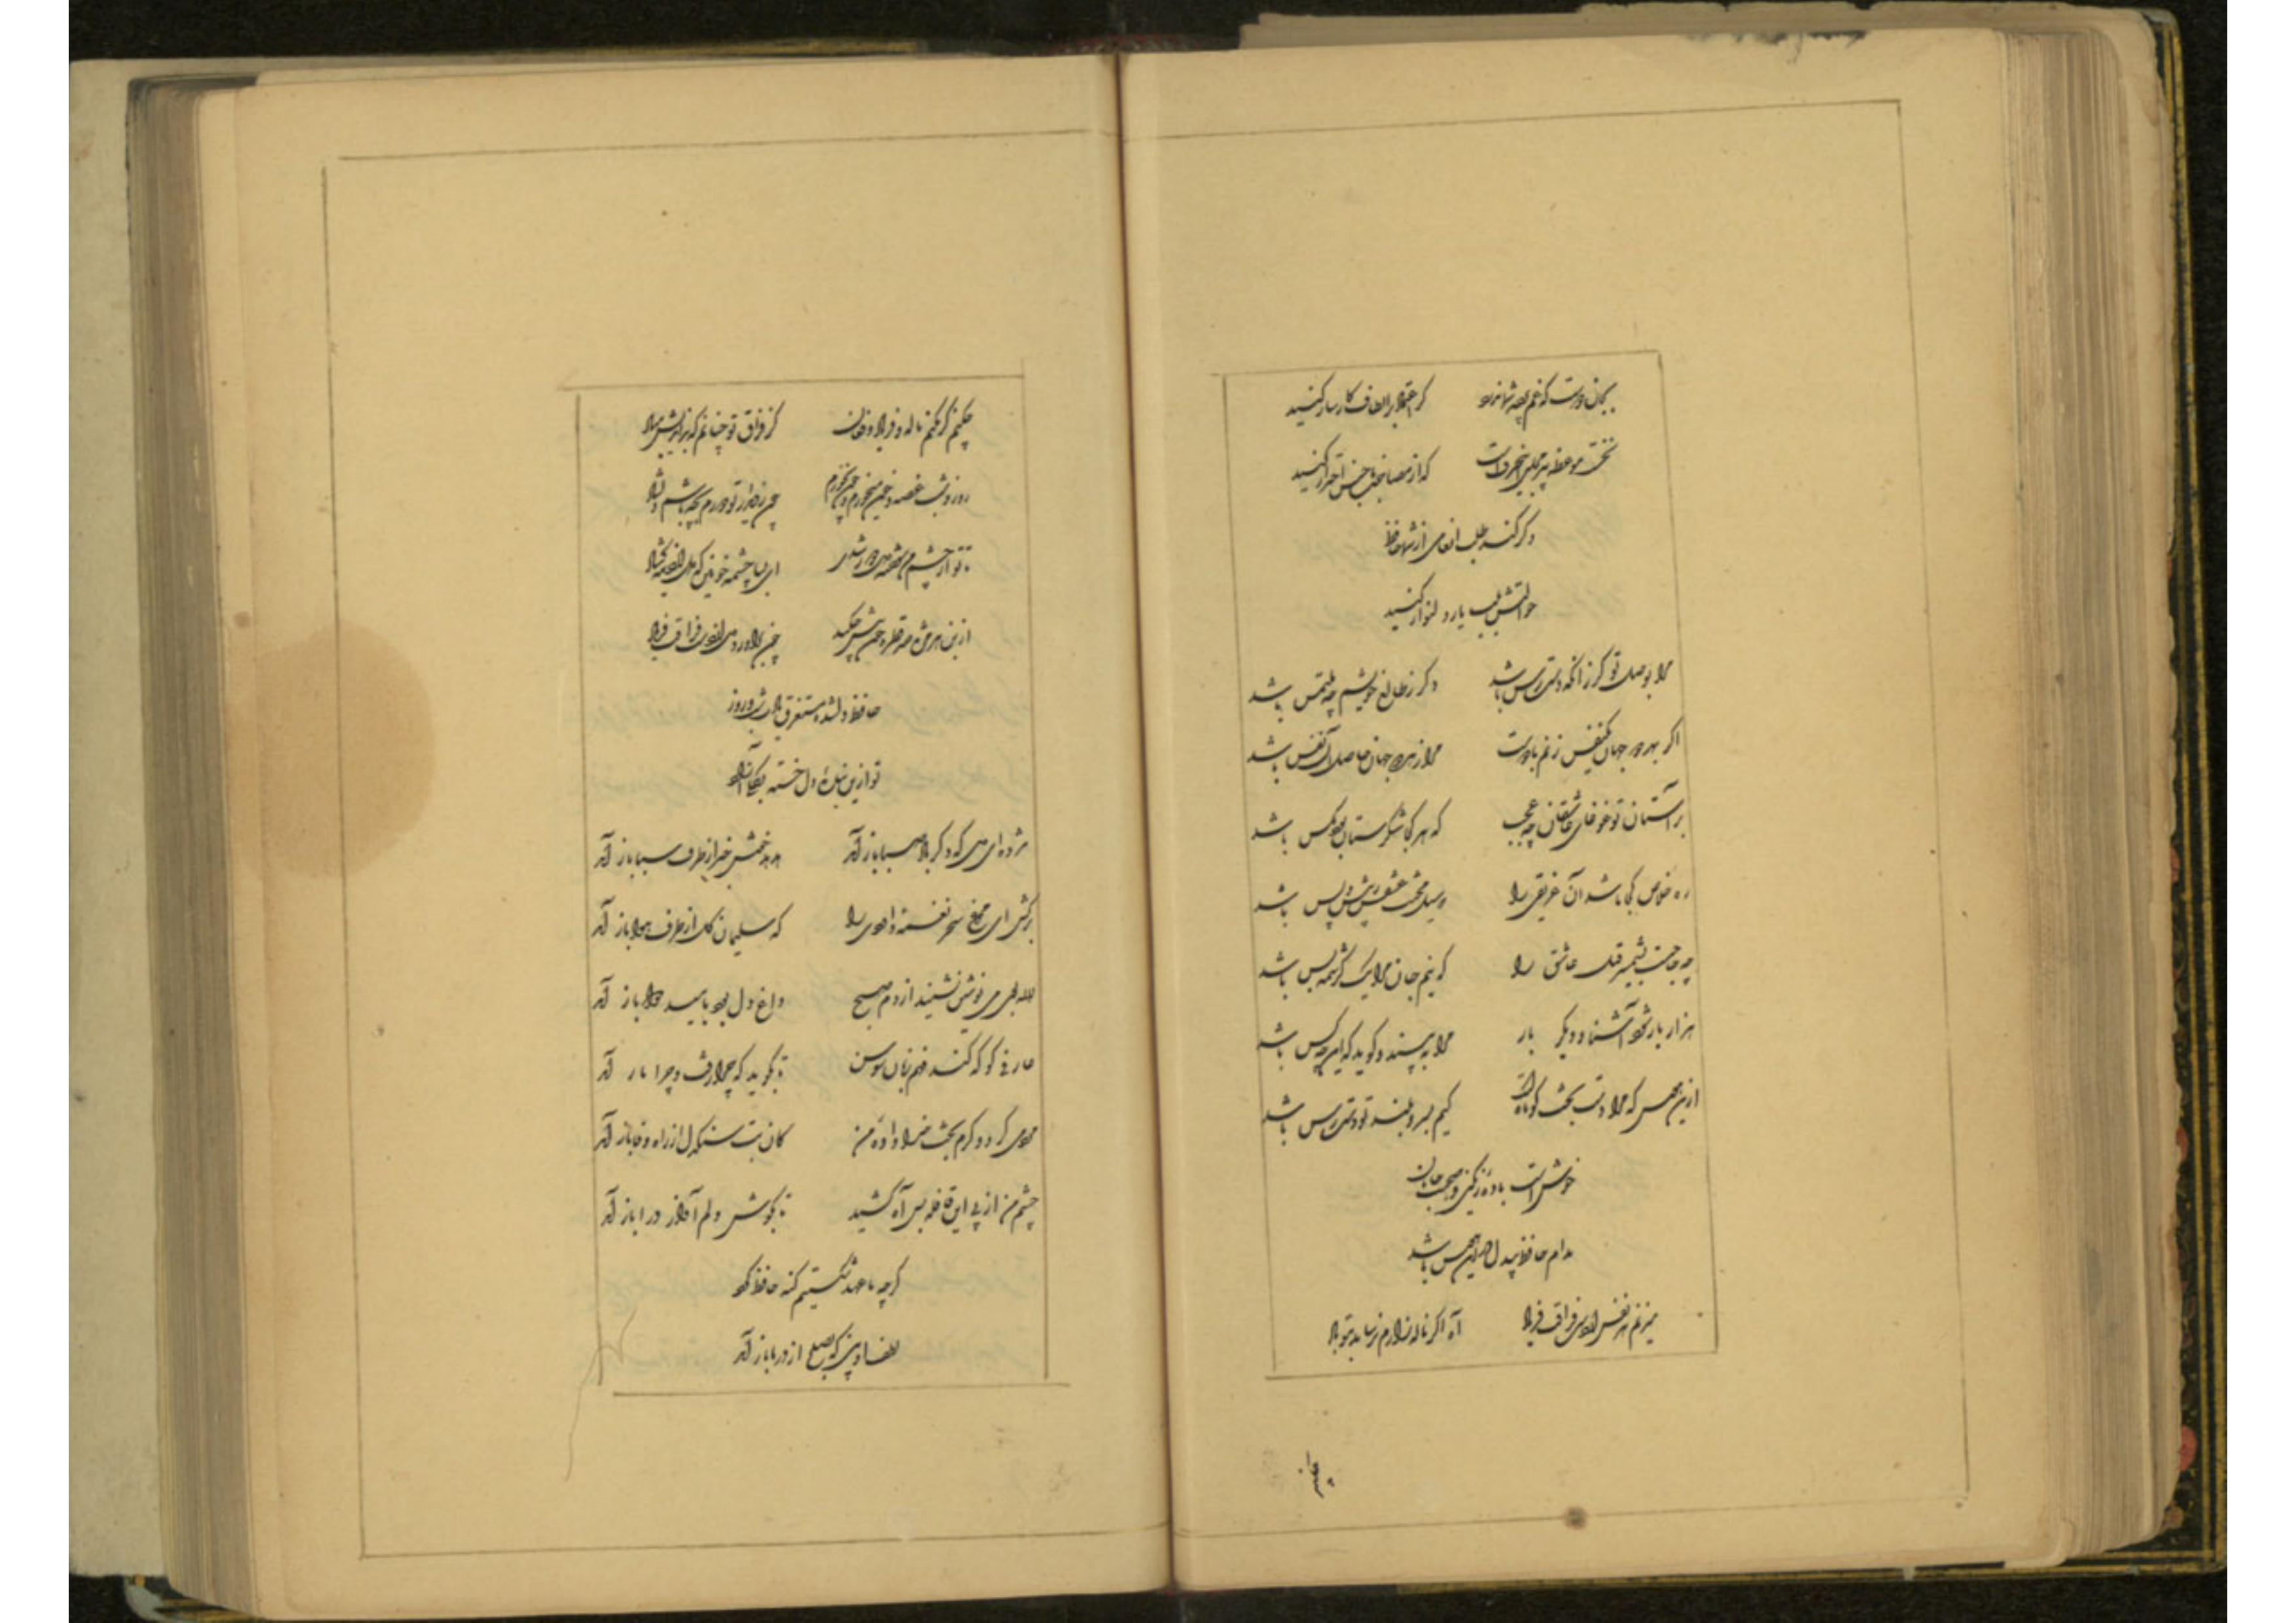 بجان دوست که غم پرده شما ندرد گر اعتماد بر الطاف کارساز کنید
نخست موعظه پیر مجلس این حرفست که از مصاحب ناجنس احتراز کنید
وگر کند طلب انعامی از شما حافظ
حوالتش بلب یار دلنواز کنید
مرا بوصل تو گر زانکه دسترس باشد دگر ز طالع خویشم چه ملتمس باشد
اگر بهر دو جهان یکنفس زنم با دوست مرا ز هر دو جهان حاصل آن نفس باشد
بر آستان تو غوغای عاشقان چه عجب که هر کجا شکرستان بود مگس باشد
ره خلاص کجا باشد آن غریقی را که سیل محنت عشقش ز پیش و پس باشد
چه حاجتست بشمشیر قتل عاشق را که نیم جان مرا یک کرشمه بس باشد
هزار بار شود آشنا و دیگر بار مرا به بیند و گوید که این چه کس باشد
ازین هوس که مرا دست بخت کوتاهست کیم بسرو بلند تو دسترس باشد
خوش است باده رنگین و صحبت جانان
مدام حافظ بیدل درین هوس باشد
میزنم هر نفس از دست فراقت فریاد آه اگر ناله زارم نرساند بتو باد
چکنم گر نکنم ناله و فریاد و فغان کز فراق تو چنانم که بداندیش مباد
روز و شب غصه و خون میخورم و چون نخورم چون ز دیدار تو دورم بچه باشم دلشاد
تا تو از چشم من سوخته دل دور شدی ای بسا چشمه خونین که دل از دیده گشاد
از بن هر مژه صد قطره خون بیش چکد چون برآرد دلم از دست فراقت فریاد
حافظ دلشده مستغرق یادت شب و روز
تو ازین بنده دل خسته بکلی آزاد
مژده ای دل که دگر باد صبا باز آمد هدهد خوش خبر از طرف سبا باز آمد
برکش ای مرغ سحر نغمه داودی را که سلیمان گل از طرف هوا باز آمد
لاله بوی می نوشین بشنید از دم صبح داغ دل بود بامید دوا باز آمد
عارفی کو که کند فهم زبان سوسن تا بگوید که چرا رفت و چرا باز آمد
مردمی کرد و کرم بخت خداداده من کان بت سنگدل از راه وفا باز آمد
چشم من از پی این قافله بس آه کشید تا بگوش دلم آواز درا باز آمد
گرچه ما عهد شکستیم گنه حافظ کرد
لطف او بین که بصلح از در ما باز آمد